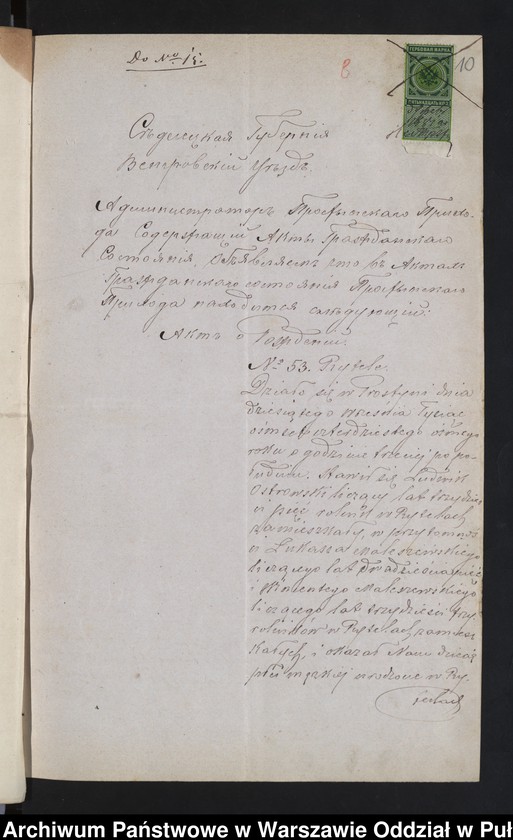 До № 15.
8
10
ГЕРБОВАЯ МАРКА
Сѣдлецкая Губернія
Венгровскій Уѣздъ.
Администраторъ Простынскаго Прихо-
да Содержащій Акты Гражданскаго
Состоянія, объявляетъ что въ Актахъ
Гражданскаго состоянія Простынскаго
Прихода находится слѣдующій:
Актъ о Рожденіи.
№ 53. Rytele.
Działo się w Prostyni dnia
dziesiątego Września tysiąc
ośmset czterdziestego ósmego
roku o godzinie trzeciej po po-
łudniu. Stawił się Ludwik
Ostrowski liczący lat trzydzieś-
ci pięć rolnik w Rytelach
zamieszkały, w przytomnoś-
ci Łukasza Maleszewskiego
liczącego lat dwadzieścia pięć
i Wincentego Maleszewskiego
liczącego lat trzydzieści trzy
rolników w Rytelach zamiesz-
kałych, i okazał Nam dziecię
płci męzkiej urodzone w Ry-
telach
Archiwum Państwowe w Warszawie Oddział w Puł